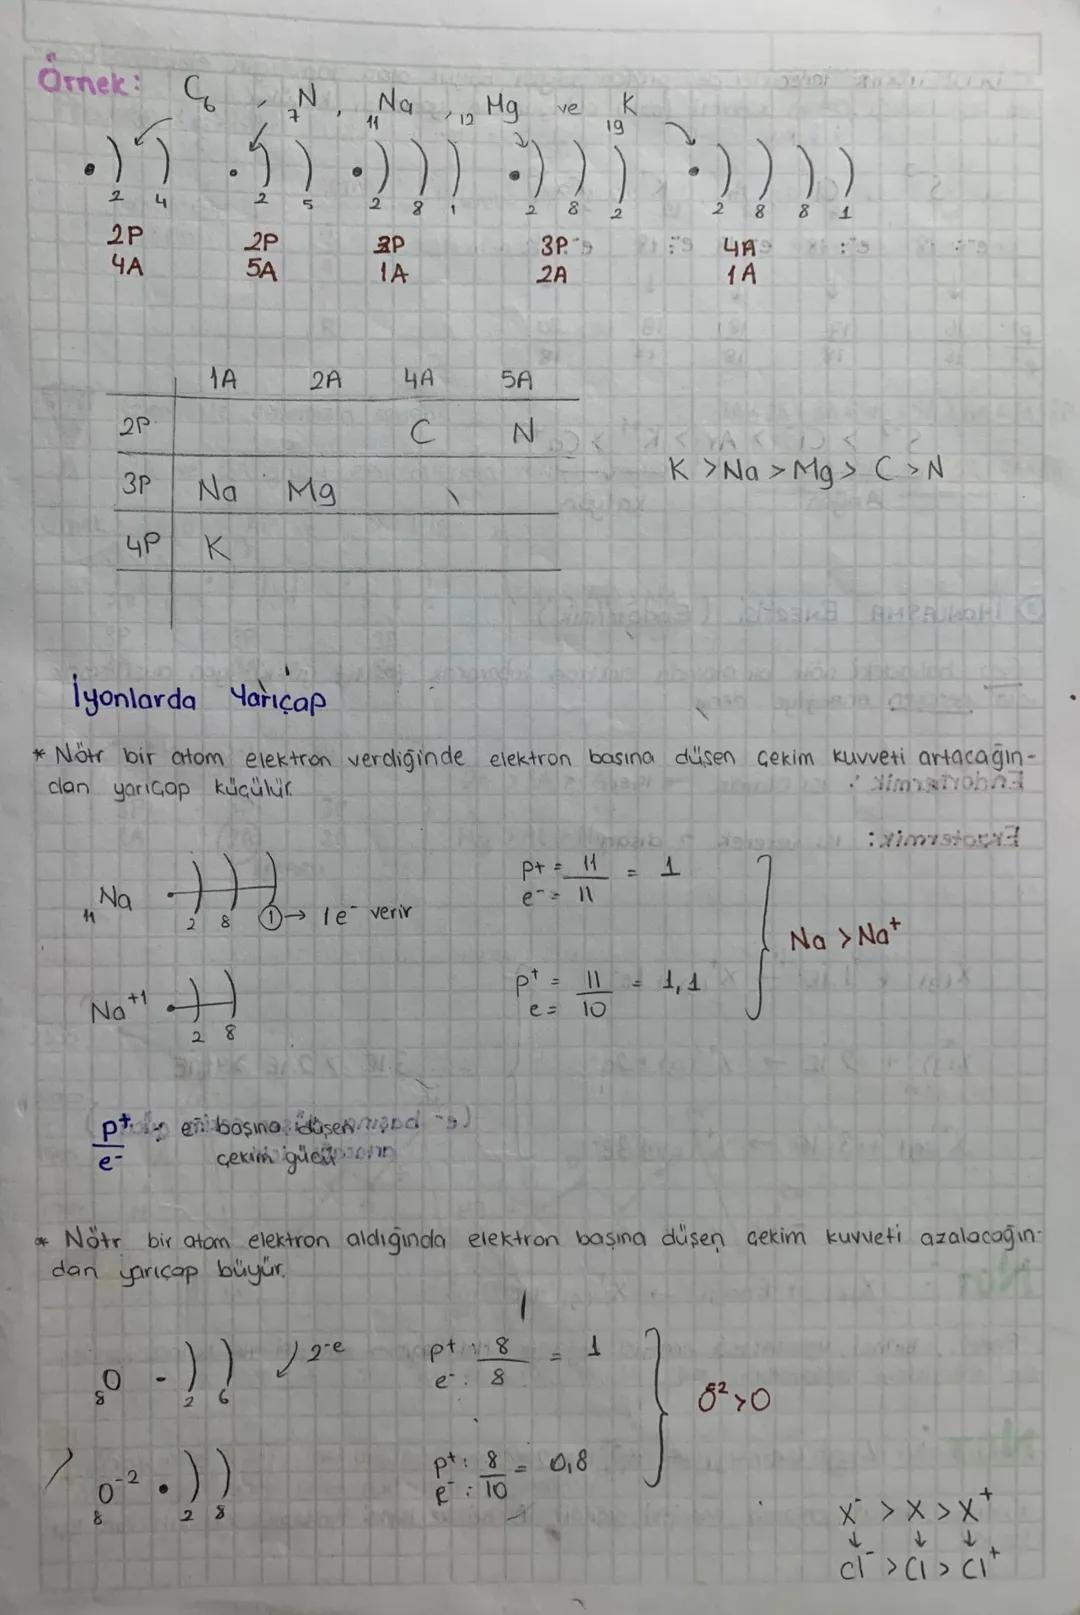 Örnek: C₆, ₇N, ₁₁Na, ₁₂Mg ve ₁₉K
2 4 2 5 2 8 1 2 8 2 2 8 8 1
2P 2P 3P 3P 4A
4A 5A 1A 2A 1A
1A 2A 4A 5A
2P C N
K > Na > Mg > C > N
3P Na Mg
4P K
İyonlarda Yarıçap
* Nötr bir atom elektron verdiğinde elektron basına düşen çekim kuvveti artacağın-
dan yarıçap küçülür.
p+ = 11 = 1
₁₁Na e⁻ = 11
2 8 1 → 1e⁻ verir
Na > Na⁺
Na⁺¹ p⁺ = 11 = 1,1
e = 10
2 8
p⁺ başına düşen
e⁻ çekim gücü
* Nötr bir atom elektron aldığında elektron başına düşen çekim kuvveti azalacağın-
dan yarıçap büyür.
2-e p+ : 8 = 1
₈O e⁻ : 8
2 6
O⁻² > O
p⁺ : 8 = 0,8
₈O⁻² e⁻ : 10
2 8
X⁻ > X > X⁺
↓ ↓ ↓
Cl⁻ > Cl > Cl⁺